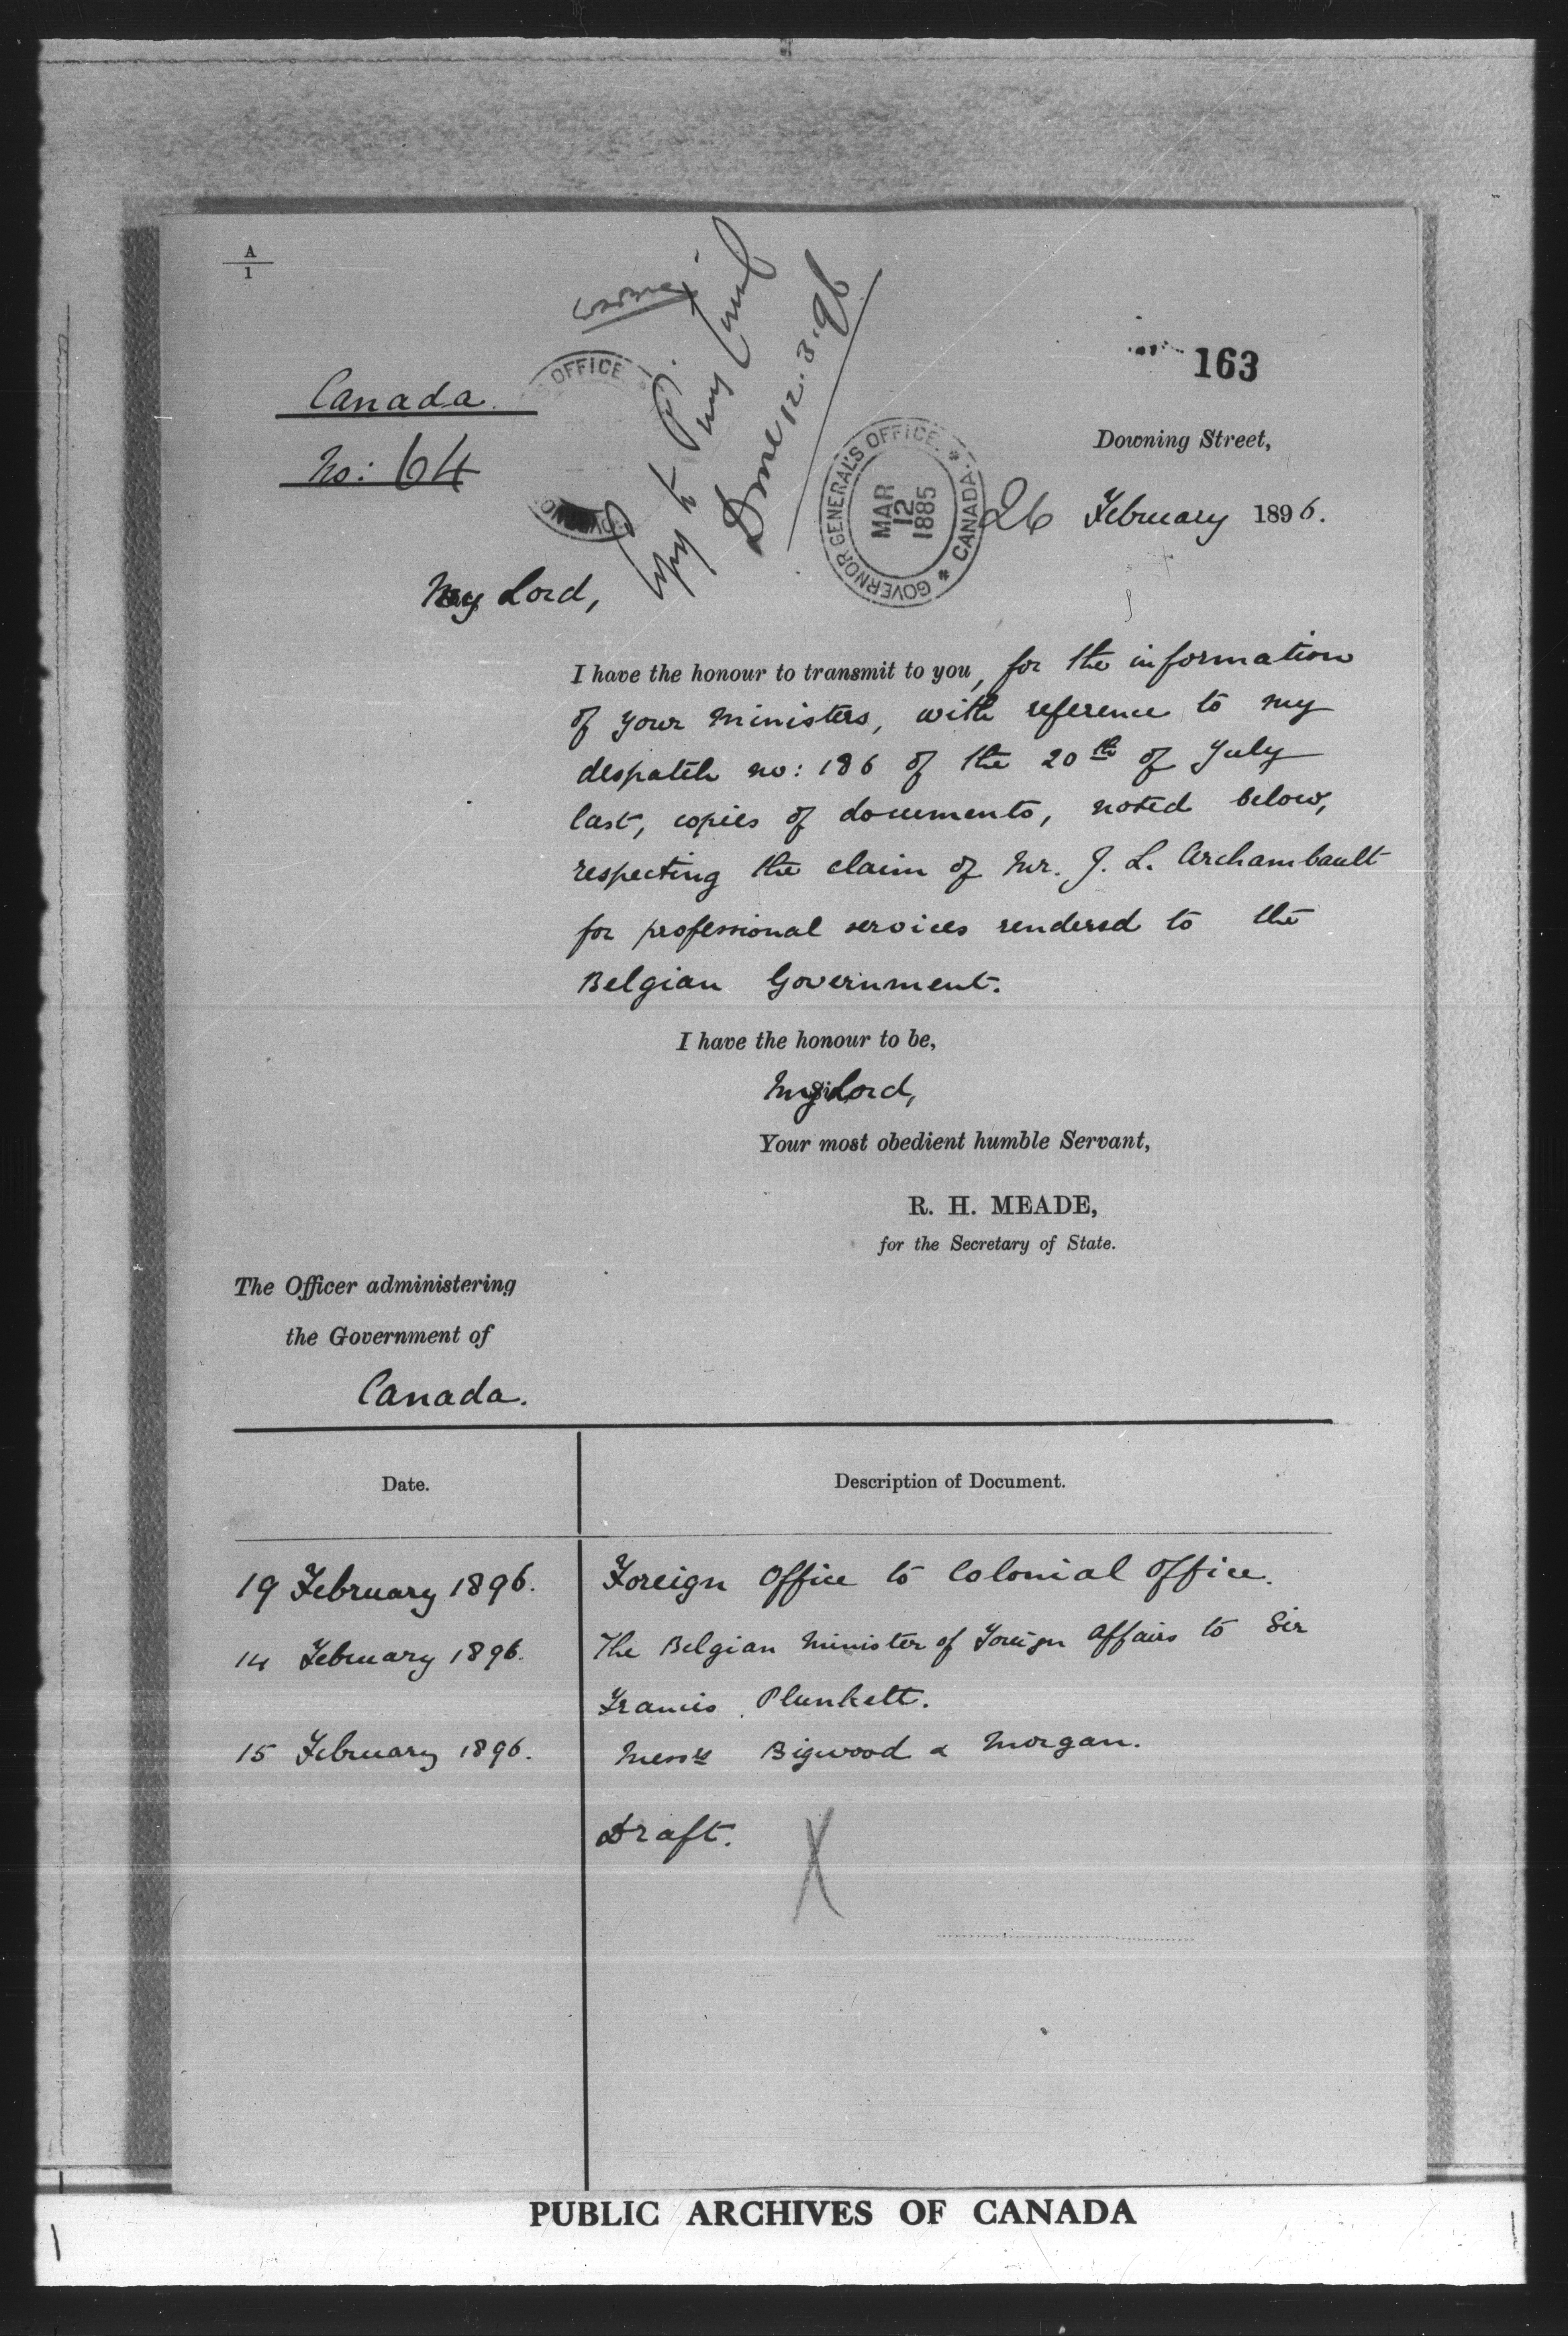 A
1
163
Canada.
No: 64
OFFICE
Copy to Privy Council
Done 12.3.96
GOVERNOR GENERAL'S OFFICE. * CANADA. *
MAR
12
1885
Downing Street,
26 February 1896.
My Lord,
I have the honour to transmit to you, for the information
of your Ministers, with reference to my
despatch no: 186 of the 20th of July
last, copies of documents, noted below,
respecting the claim of Mr. J. L. Archambault
for professional services rendered to the
Belgian Government.
I have the honour to be,
My Lord,
Your most obedient humble Servant,
R. H. MEADE,
for the Secretary of State.
The Officer administering
the Government of
Canada.
Date.
Description of Document.
19 February 1896.
Foreign Office to Colonial Office.
14 February 1896.
The Belgian Minister of Foreign Affairs to Sir
Francis Plunkett.
15 February 1896.
Messrs Bigwood & Morgan.
Draft.
X
PUBLIC ARCHIVES OF CANADA